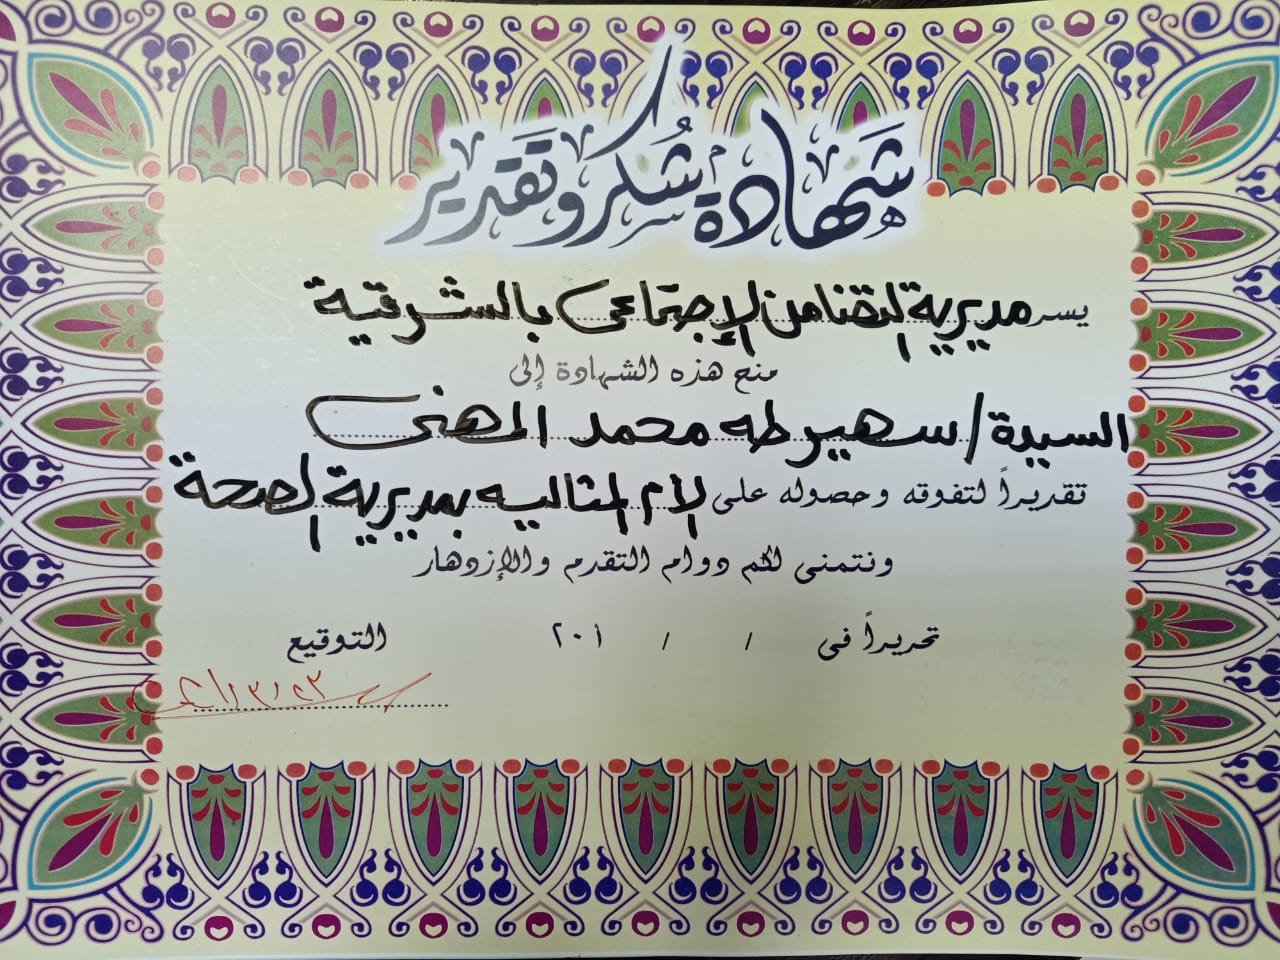 شهادة شكر وتقدير
يسر مديرية التضامن الإجتماعى بالشرقية
منح هذه الشهادة إلى
السيدة / سهير طه محمد المهنى
تقديراً لتفوقه وحصوله على الأم المثاليه بمديرية الصحة
ونتمنى لكم دوام التقدم والإزدهار
تحريراً فى / / ٢٠١
التوقيع